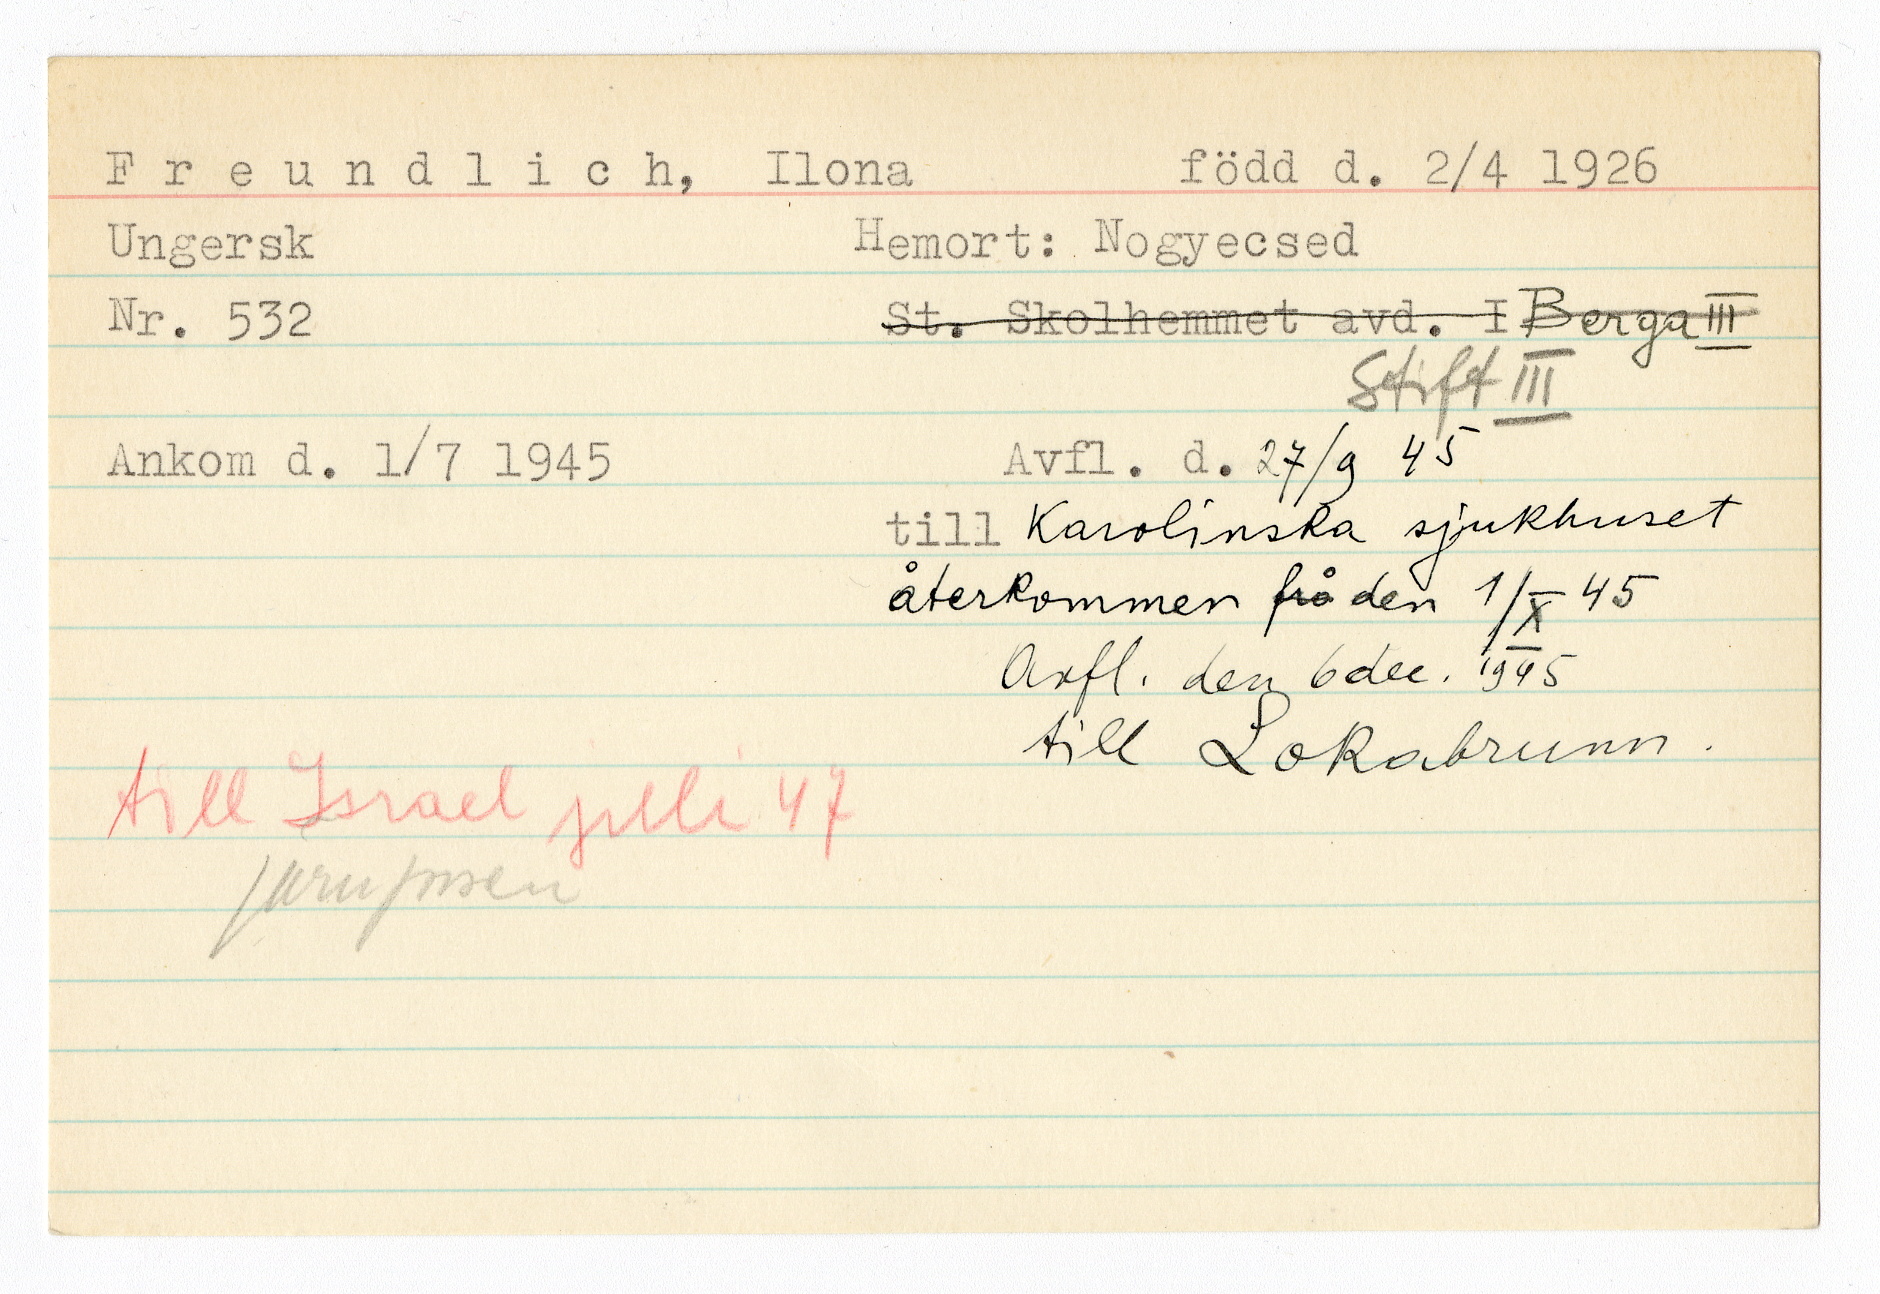 Freundlich, Ilona född d. 2/4 1926
Ungersk Hemort: Nogyecsed
Nr. 532 St. Skolhemmet avd. I Berga III
Stift III
Ankom d. 1/7 1945 Avfl. d. 27/9 45
till Karolinska sjukhuset
återkommen frå den 1/X 45
Avfl. den 6 dec. 1945
till Lokabrunn.
till Israel juli 47